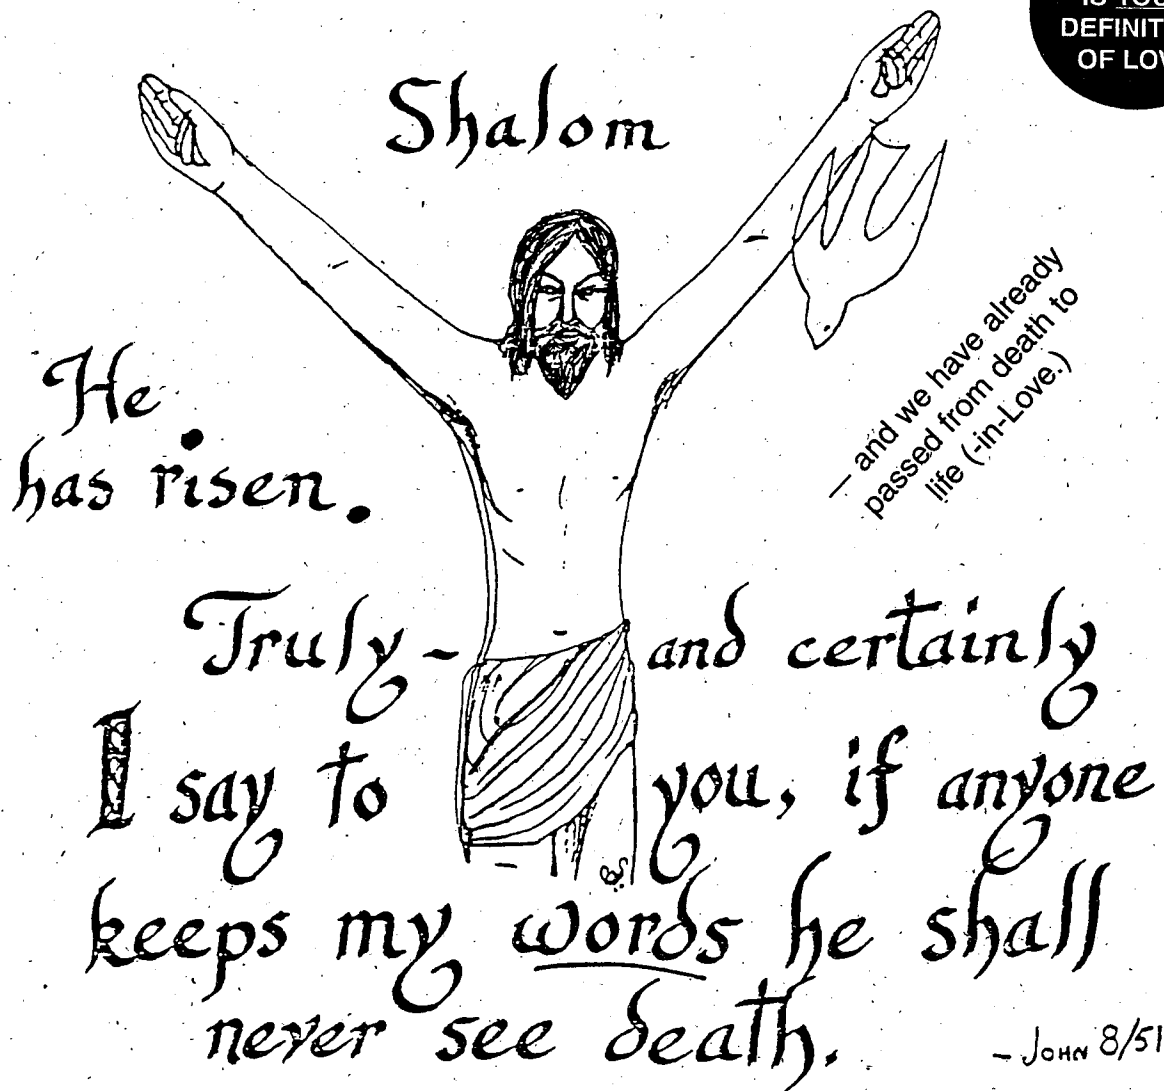 Shalom
IS
DEFINIT
OF LOV
He
has risen.
– and we have already
passed from death to
life (-in-Love.)
Truly- and certainly
I say to you, if anyone
keeps my words he shall
never see death.
- JOHN 8/51